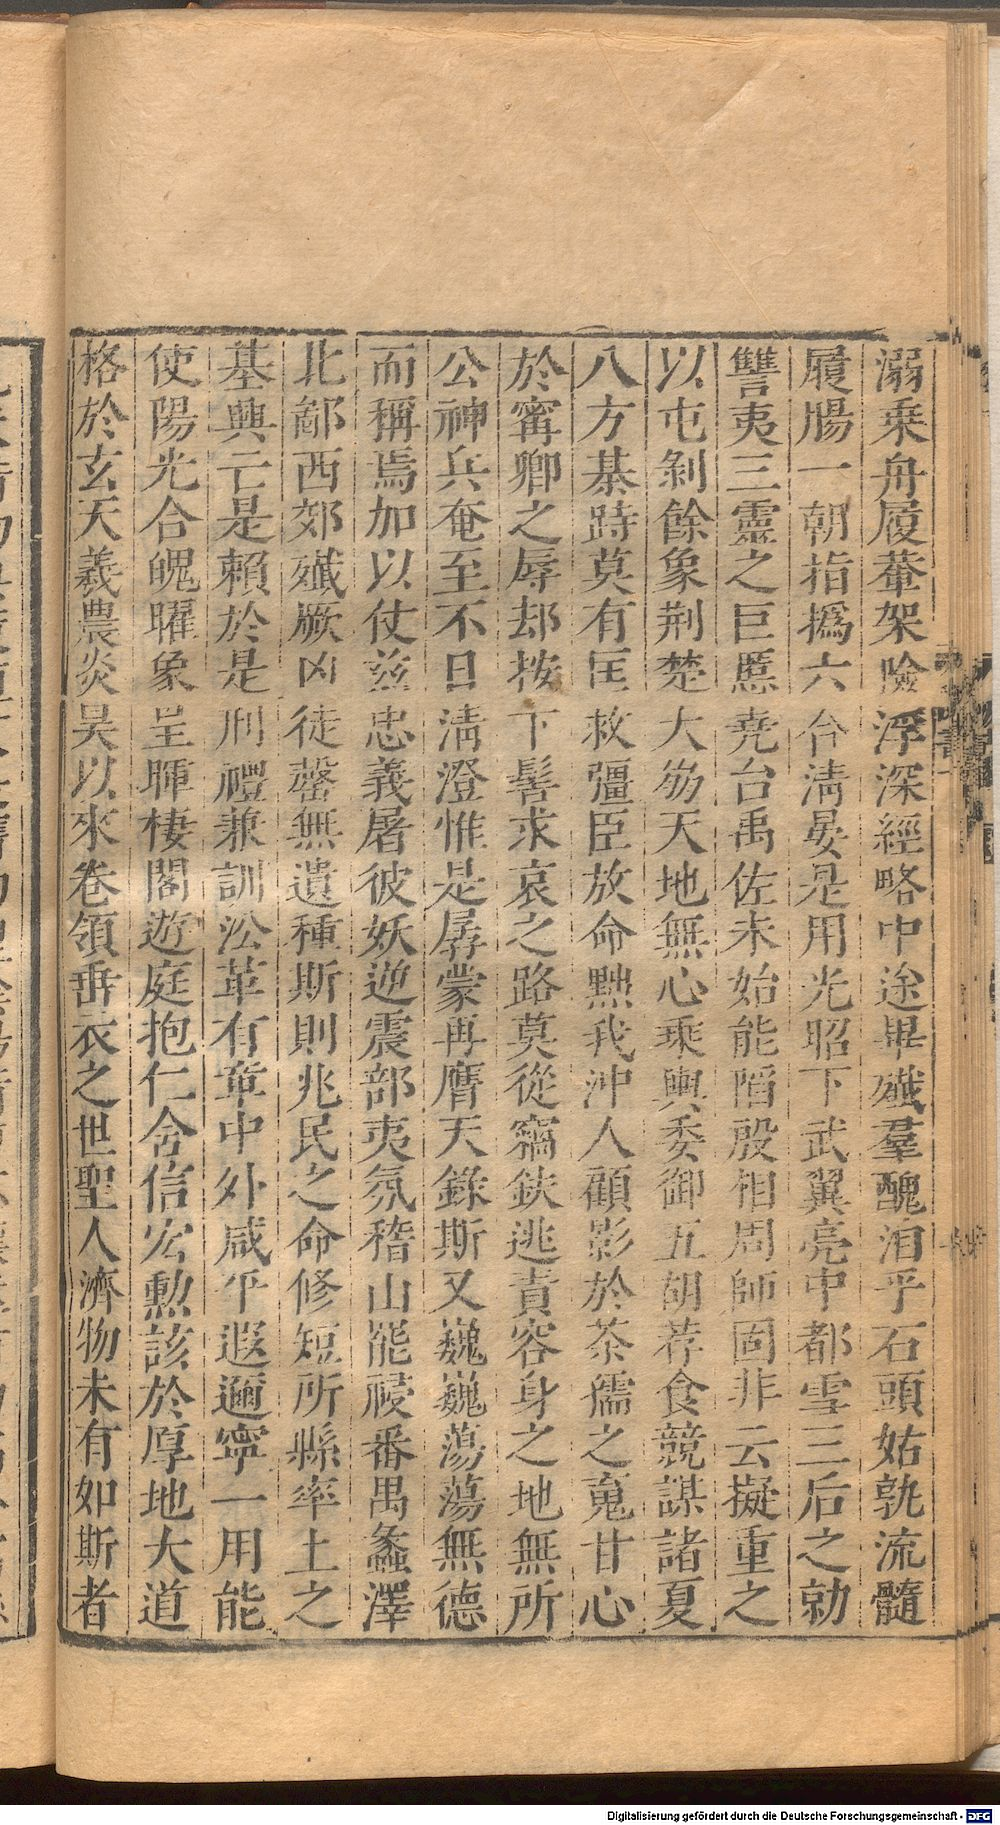 溺乗舟履葊架險浮深經略中途畢殱羣醜洎乎石頭姑孰流髓
履腸一朝指撝六合清晏是用光昭下武翼亮中都雪三后之勍
讐夷三靈之巨慝堯台禹佐未始能陗殷相周師固非云擬重之
以屯剝餘象荆楚大㓜天地無心乘輿委御五胡荐食競謀諸夏
八方基跱莫有匡救彊臣放命黜我沖人顧影於荼孺之䰟甘心
於寗卿之辱却按下髻求哀之路莫從竊鈇逃責容身之地無所
公神兵奄至不日清澄惟是孱蒙再膺天錄斯又巍巍蕩蕩無德
而稱焉加以仗茲忠義屠彼妖逆震部夷氛稽山罷祲番禺蠡澤
北鄙西郊殱厥凶徒罄無遺種斯則兆民之命修短所縣率土之
基興亡是賴於是刑禮兼訓㳂革有章中外咸平遐邇寧一用能
使陽光合魄曜象呈暉棲閣遊庭抱仁含信宏勲該於厚地大道
格於玄天義農炎昊以來卷領垂衣之世聖人濟物未有如斯者
Digitalisierung gefördert durch die Deutsche Forschungsgemeinschaft - DFG